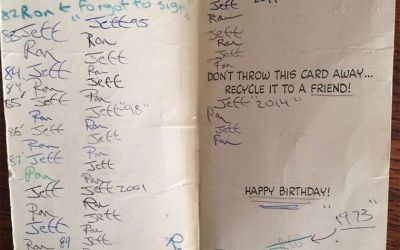 82 Ron & forgot to sign
83 Jeff Jeff 95
Ron Ron
Jeff Jeff
84 Jeff Ron
84 Ron Jeff
85 Jeff Ron
Ron Jeff "98"
86 Jeff Ron
Ron Jeff
87 Jeff Ron
Ron Jeff
Jeff Jeff 2001
Ron Ron
Jeff Jeff
Ron 89 Ron
Jeff
Ron
Jeff
Ron
Jeff
Ron
DON'T THROW THIS CARD AWAY...
RECYCLE IT TO A FRIEND!
Jeff "2014"
Ron
Jeff
Ron
HAPPY BIRTHDAY!
"1973"